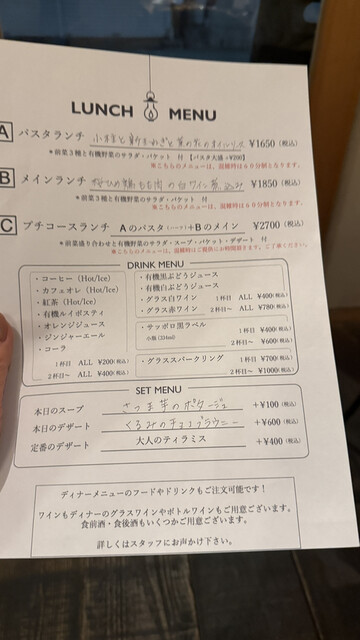 LUNCH MENU
A パスタランチ 小エビと新玉ねぎと菜の花のオイルソース ¥1650（税込）
＊前菜3種と有機野菜のサラダ・バケット 付 【パスタ大盛＋¥200】
※こちらのメニューは、混雑時は60分制となります。
B メインランチ 桜ひめ鶏もも肉の白ワイン煮込み ¥1850（税込）
＊前菜3種と有機野菜のサラダ・バケット 付
※こちらのメニューは、混雑時は60分制となります。
C プチコースランチ Aのパスタ ＋Bのメイン ¥2700（税込）
＊前菜盛り合わせと有機野菜のサラダ・スープ・バケット・デザート 付
DRINK MENU
・コーヒー（Hot/Ice）
・カフェオレ（Hot/Ice）
・紅茶（Hot/Ice）
・有機ルイボスティ
・オレンジジュース
・ジンジャーエール
・コーラ
1杯目 ALL ¥200（税込）
2杯目〜 ALL ¥400（税込）
・有機黒ぶどうジュース
・有機白ぶどうジュース
・グラス白ワイン 1杯目 ALL ¥400（税込）
・グラス赤ワイン 2杯目〜 ALL ¥780（税込）
・サッポロ黒ラベル 1杯目 ¥400（税込）
小瓶 (334ml) 2杯目〜 ¥600（税込）
・グラススパークリング 1杯目 ¥700（税込）
2杯目〜 ¥1000（税込）
SET MENU
本日のスープ さつま芋のポタージュ +¥100（税込）
本日のデザート くるみのチョコブラウニー +¥600（税込）
定番のデザート 大人のティラミス +¥400（税込）
ディナーメニューのフードやドリンクもご注文可能です！
ワインもディナーのグラスワインやボトルワインもご用意ございます。
食前酒・食後酒もいくつかご用意ございます。
詳しくはスタッフにお声かけ下さい。